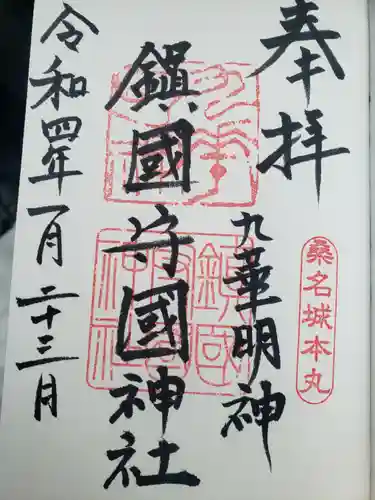 奉拝
桑名城本丸
九華明神
鎭國守國神社
令和四年一月二十三月